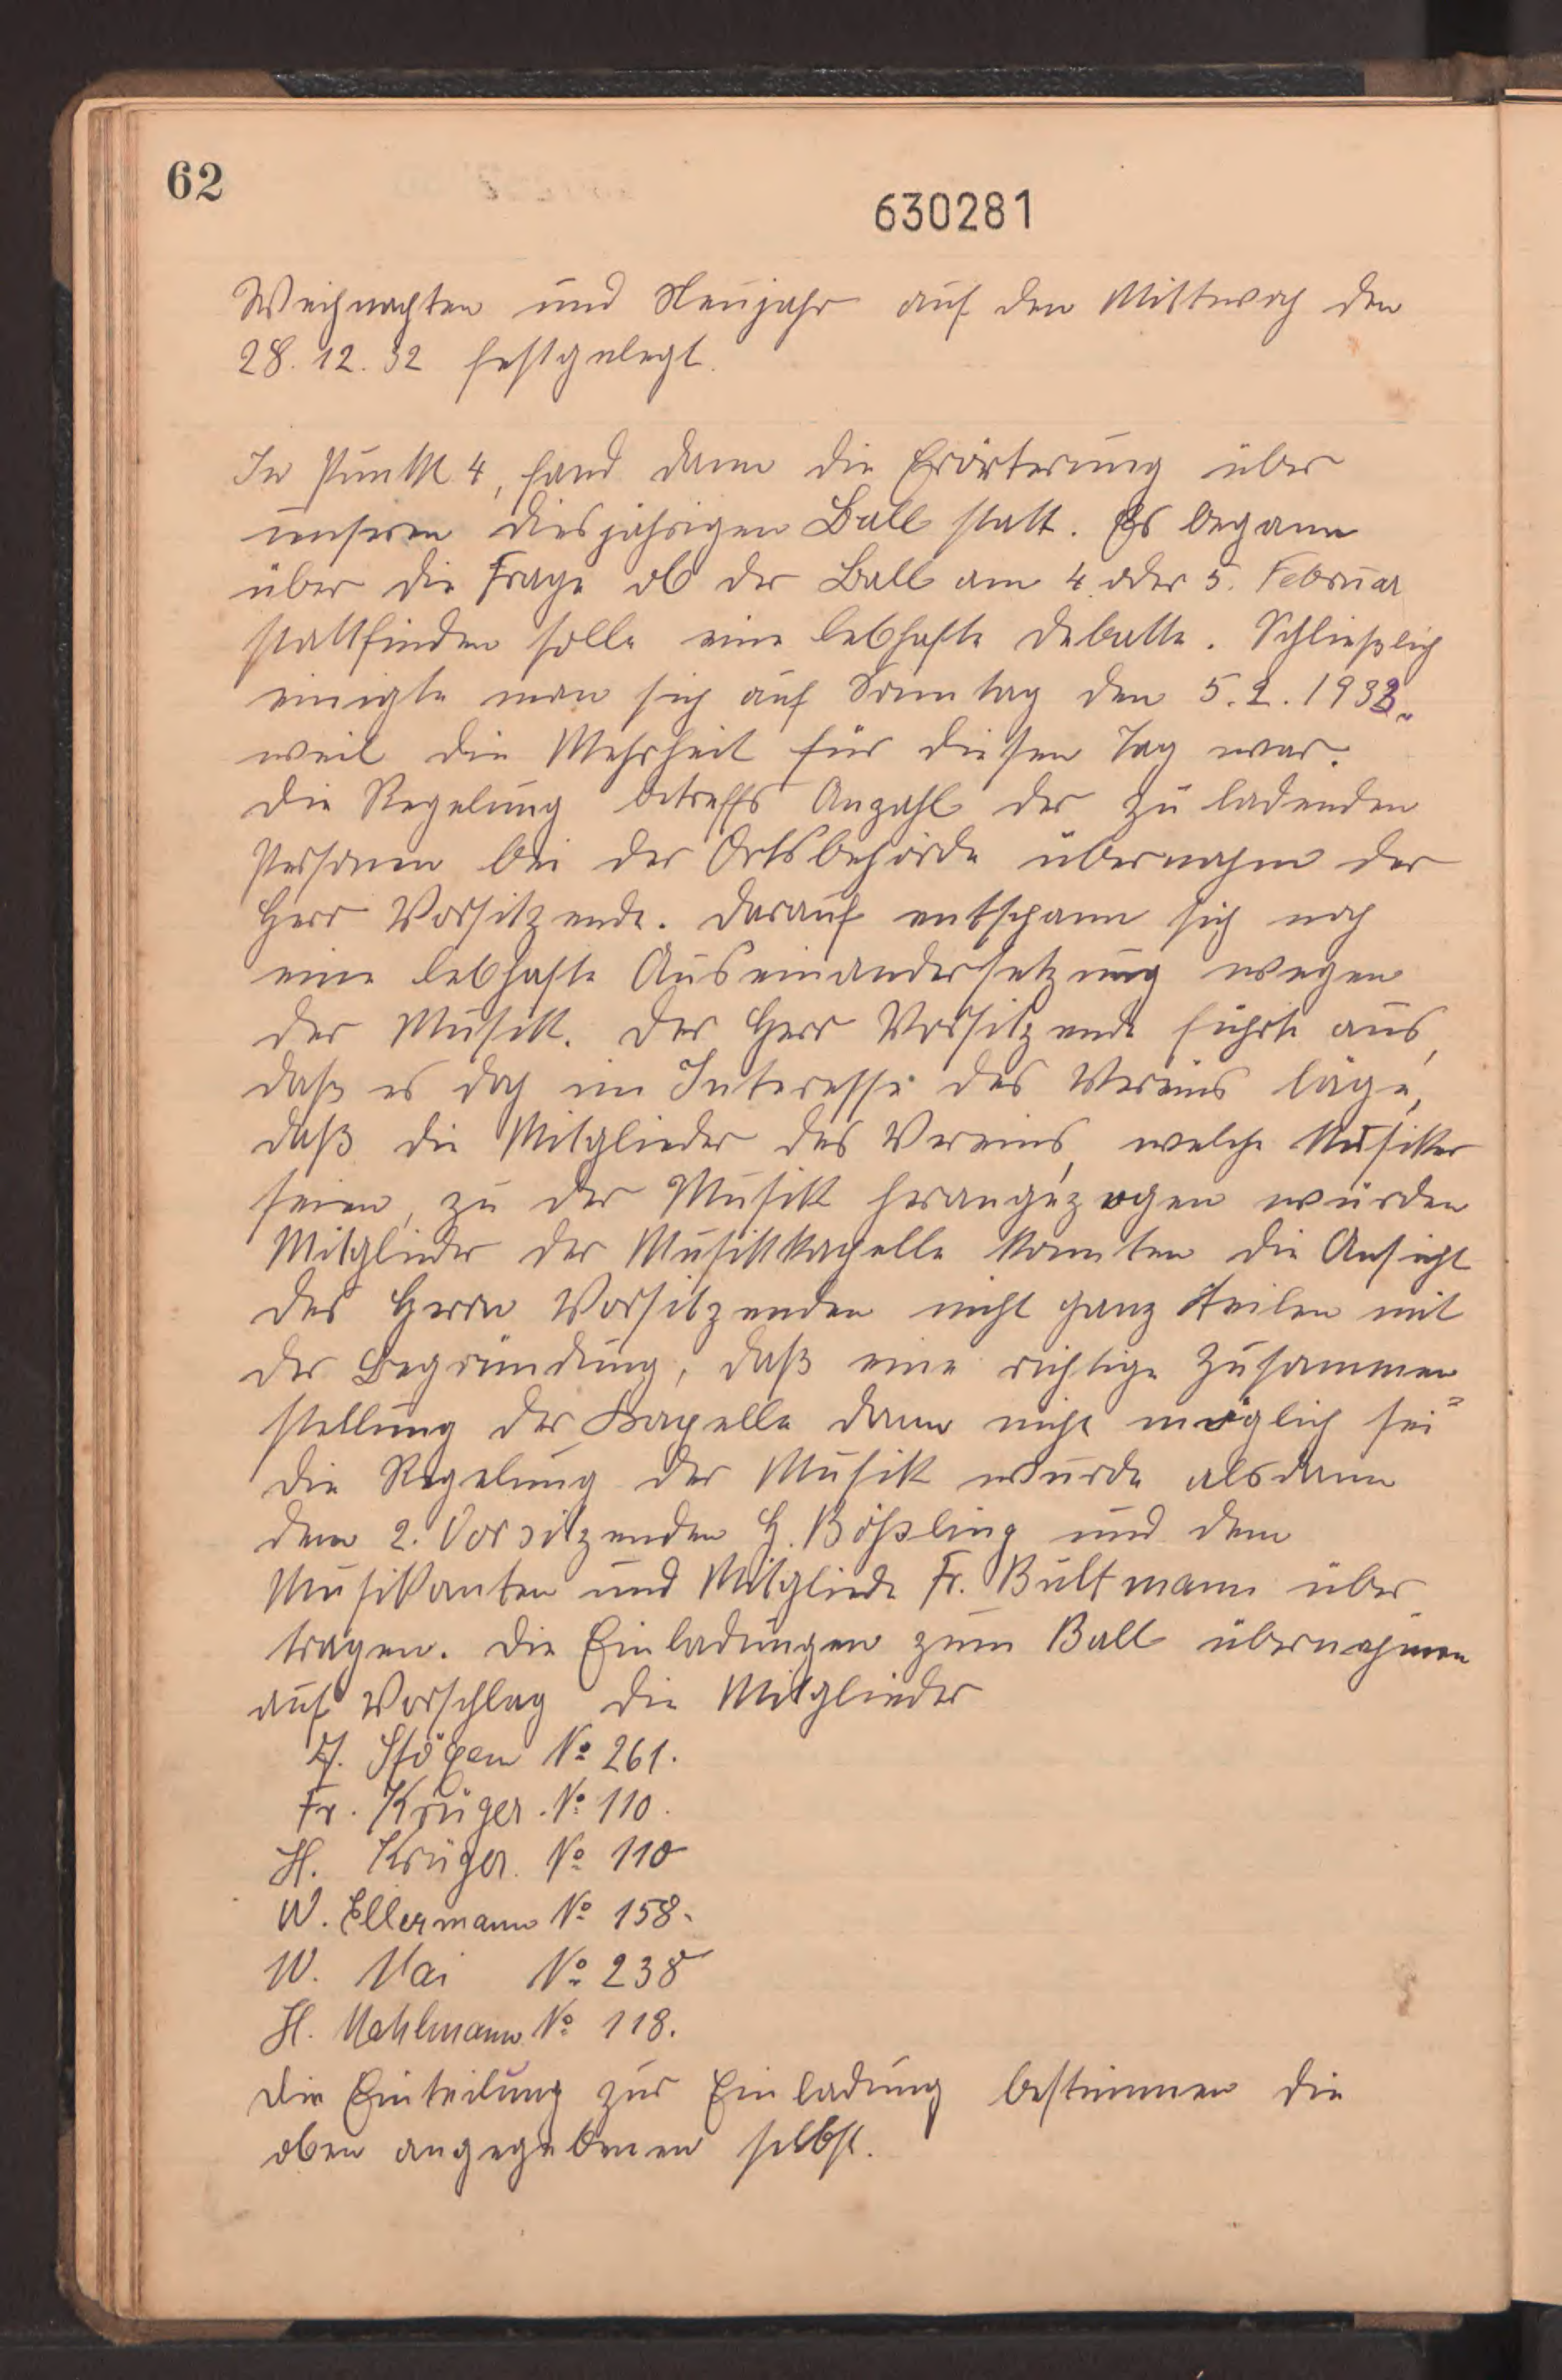 62
630281
Weihnachten und Neujahr auf den Mittwoch den
28. 12. 32 festgelegt.
In Punkt 4, fand dann die Erörterung über
unseren diesjährigen Ball statt. Es begann
über die Frage ob der Ball am 4. oder 5. Februar
stattfinden solle eine lebhafte Debatte. Schließlich
einigte man sich auf Sonntag den 5. 2. 1933.
weil die Mehrheit für diesen Tag war.
Die Regelung betreffs Anzahl der zu ladenden
Personen bei der Ortsbehörde übernahm der
Herr Vorsitzende. Darauf entspann sich noch
eine lebhafte Auseinandersetzung wegen
der Musik. Der Herr Vorsitzende führte aus,
daß es doch im Interesse des Vereins läge,
daß die Mitglieder des Vereins, welche Musiker
seien, zu der Musik herangezogen würden
Mitglieder der Musikkapelle konnten die Ansicht
des Herrn Vorsitzenden nicht ganz teilen mit
der Begründung, daß eine richtige Zusammen
stellung der Kapelle dann nicht möglich sei"
Die Regelung der Musik wurde alsdann
dem 2. Vorsitzenden H. Bößling und dem
Musikanten und Mitgliede Fr. Bultmann über
tragen. Die Einladungen zum Ball übernahmen
auf Vorschlag die Mitglieder
No 261.
Fr. Krüger. No 110.
H. Krüger. No 110
W. Ellermann No 158.
W. Mai No 238
H. Mahlmann No 118.
Die Einteilung zur Einladung bestimmen die
oben angegebenen selbst.